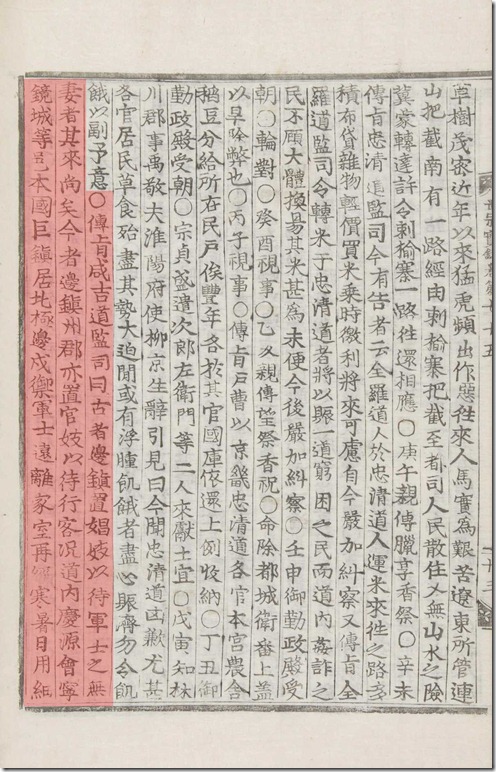 草樹茂密近年以來猛虎頻出作惡徃來人馬實爲艱苦遼東所管連
山把截南有一路經由刺楡寨把截至都司人民散住又無山水之險
冀蒙轉達許令刺楡寨一路徃還相應○庚午親傳臘享香祭○辛未
傳旨忠清道監司今有告者云全羅道人於忠清道人運米來徃之路多
積布貨雜物輕價買米乘時徼利將來可慮自今嚴加糾察又傳旨全
羅道監司令轉米于忠清道者將以賑一道窮困之民而道內姦詐之
民不顧大體換易其米甚爲未便今後嚴加糾察○壬申御勤政殿受
朝○輪對○癸酉視事○乙亥親傳望祭香祝○命除都城衛番上蓋
以旱除弊也○丙子視事○傳旨戶曹以京畿忠清道各官本宮農舍
稻豆分給所在民戶俟豊年各於其官國庫依還上例收納○丁丑御
勤政殿受朝○宗貞盛遣次郎左衛門等二人來獻土宜○戊寅知林
川郡事禹敬夫淮陽府使柳京生辭引見曰今聞忠清道凶歉尤甚
各官居民草食殆盡其勢大迫閒或有浮腫飢餓者盡心賑濟勿令飢
餓以副予意○傳旨咸吉道監司曰古者邊鎭置娼妓以待軍士之無
妻者其來尚矣今者邊鎭州郡亦置官妓以待行客况道內慶源會寧
鏡城等邑本國巨鎭居北極邊戍禦軍士遠離家室再寒暑日用細